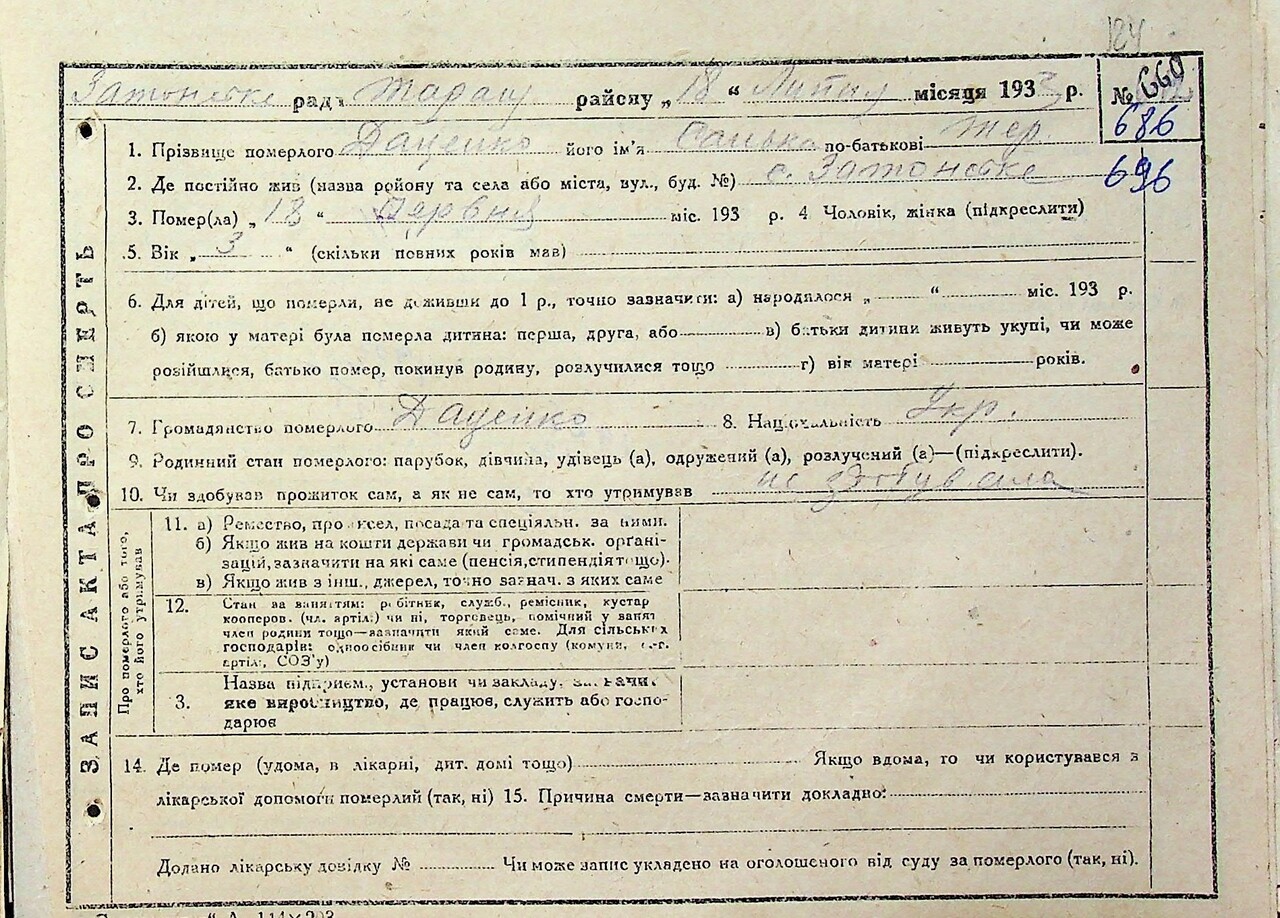 184
Затонське рад Таращ району „18“ Липня місяця 1933 р. № 660
686
696
ЗАПИС АКТА ПРО СМЕРТЬ
1. Прізвище померлого Даценко його ім'я Санька по-батькові Тер.
2. Де постійно жив (назва району та села або міста, вул., буд. №) с. Затонське
3. Помер(ла) „18“ Червня міс. 193 р. 4 Чоловік, жінка (підкреслити)
5. Вік „3“ (скільки повних років мав)
6. Для дітей, що померли, не доживши до 1 р., точно зазначити: а) народилося „ “ міс. 193 р.
б) якою у матері була померла дитина: перша, друга, або в) батьки дитини живуть укупі, чи може
розійшлися, батько помер, покинув родину, розлучилися тощо г) вік матері років.
7. Громадянство померлого Даценко 8. Національність Укр.
9. Родинний стан померлого: парубок, дівчина, удівець (а), одружений (а), розлучений (а)—(підкреслити).
10. Чи здобував прожиток сам, а як не сам, то хто утримував не здобувала
Про померлого або того,
хто його утримував
11. а) Ремество, промисел, посада та спеціяльн. за ними.
б) Якщо жив на кошти держави чи громадськ. орґані-
зацій, зазначити на які саме (пенсія, стипендія тощо).
в) Якщо жив з інш., джерел, точно зазнач. з яких саме
12. Стан за заняттям: робітник, служб., ремісник, кустар
кооперов. (чл. артіл:) чи ні, торговець, помічний у занят
член родини тощо—зазначити який саме. Для сільських
господарів: одноосібник чи член колгоспу (комуни, с.-г.
артіл:, СОЗ'у)
Назва підприєм., установи чи закладу, зазначит.
3. яке виробництво, де працює, служить або госпо-
дарює
14. Де помер (удома, в лікарні, дит. домі тощо) Якщо вдома, то чи користувався з
лікарської допомоги померлий (так, ні) 15. Причина смерти—зазначити докладно:
Додано лікарську довідку № Чи може запис укладено на оголошеного від суду за померлого (так, ні).
“ А 114×203